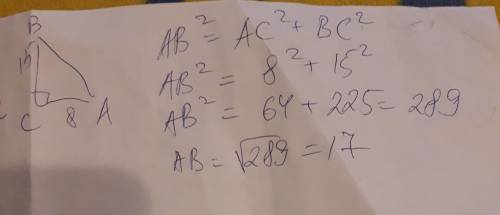 B
15
C 8 A
AB² = AC² + BC²
AB² = 8² + 15²
AB² = 64 + 225 = 289
AB = √289 = 17